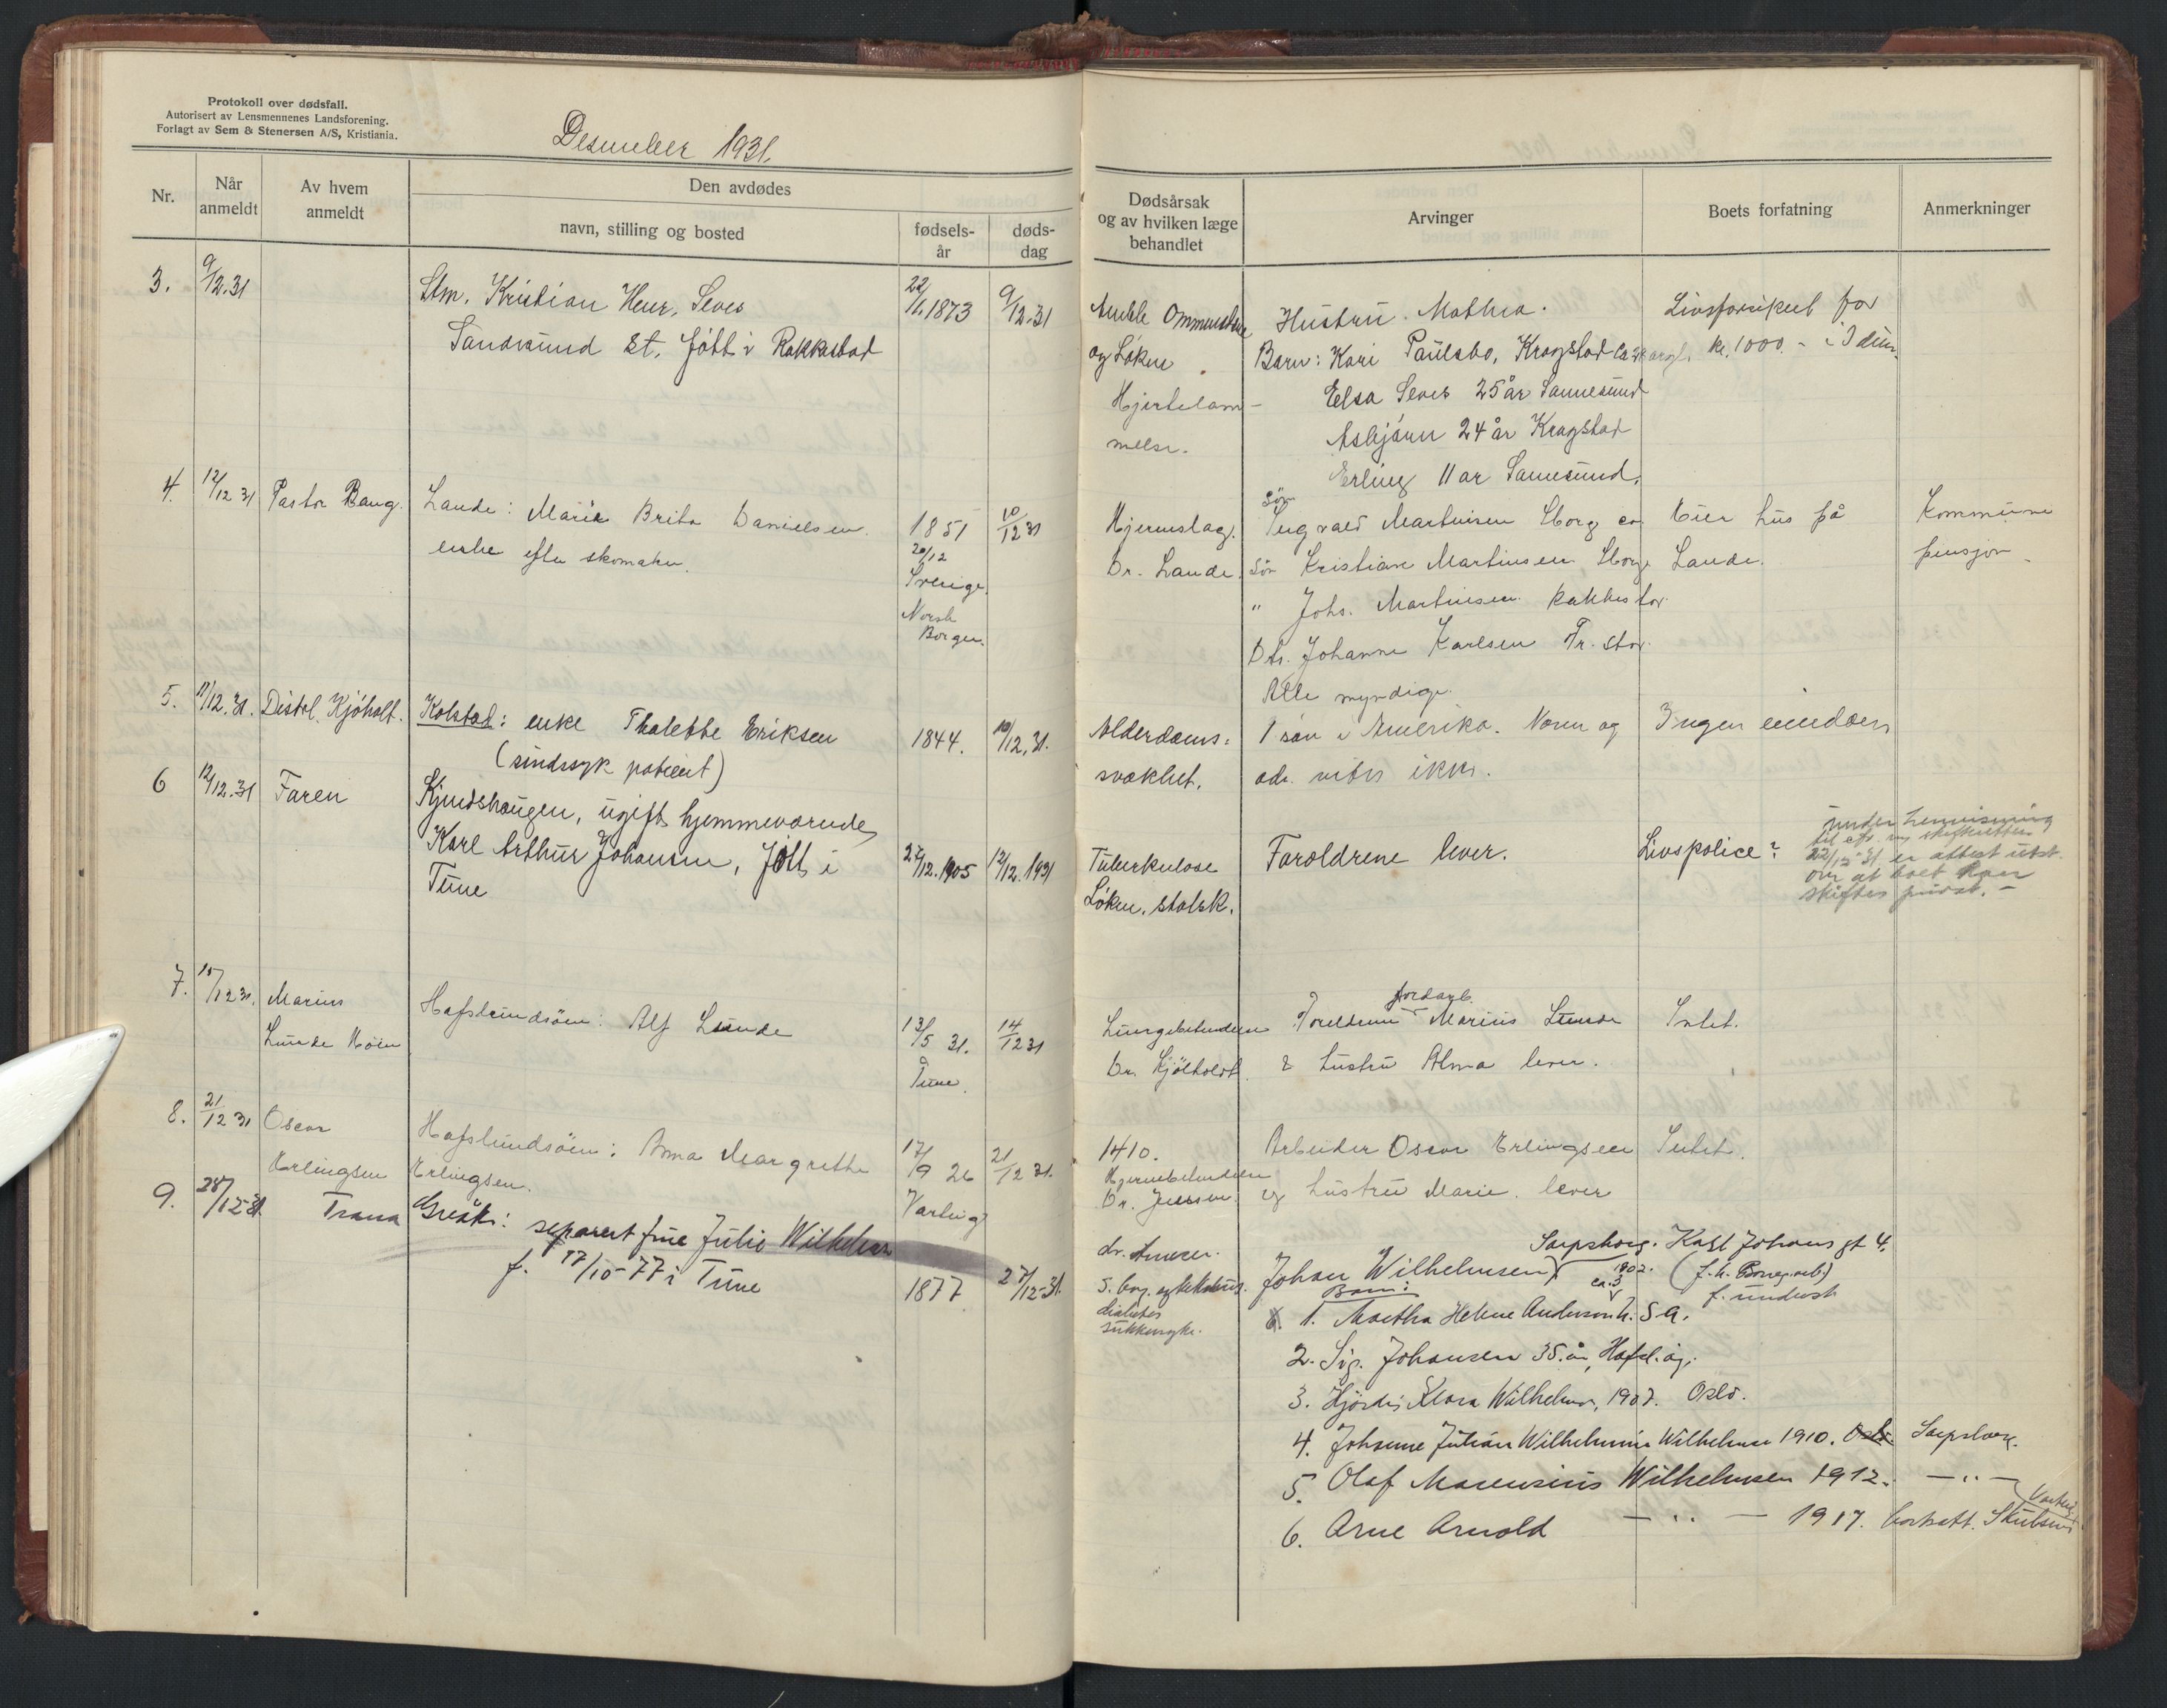 Protokoll over dødsfall.
Autorisert av Lensmennenes Landsforening.
Forlagt av Sem & Stenersen A/S, Kristiania.
Desember 1931.
Nr.
Når anmeldt
Av hvem anmeldt
Den avdødes
navn, stilling og bosted
fødsels-år
døds-dag
Dødsårsak og av hvilken læge behandlet
Arvinger
Boets forfatning
Anmerkninger
3. 9/12.31
Stm. Kristian Henr. Sever
Sandesund st. født i Rakkestad
22/1.1873
9/12.31
og Løken
Hjertelam-
melse.
Hustru. Mathea.
Barn: Kari Paulsbo, Kragstad
Elsa Sever 25 år Sannesund
Asbjörn 24 år Kragstad
Erling 11 ar Sannesund.
Livsforsikret for
kr. 1000.-
4. 12/12 31 Pastor Bang.
Lande: Marie Brita Danielsen.
enke efter skomaker.
1851
20/12
Sverige.
Norsk
Borger.
10/12 31
Hjerneslag.
Dr. Lande.
Sön
Ingvald Martinsen Sborg
Sön Kristian Martinsen Sborg
" Johs. Martinsen Rakkestad
Dtr. Johanne Karlsen Fr.stad.
Alle myndige.
Eier hus på
Lande.
Kommune
pensjon
5. 11/12.31. Distrl. Kjöholt.
Kolstad: enke Thalette Eriksen
(sindssyk patient)
1844.
10/12.31.
Alderdoms-
svakhet.
1 sön i Amerika. Navn og
adr. vites ikke.
Ingen eiendom
6 12/12.31 Faren
Kjendshaugen, ugift, hjemmeværende
Karl Arthur Johansen, født i
Tune
22/12.1905
12/12.1931
Tuberkulose
Løken, Statsk.
Foreldrene lever.
Livspolice?
under henvisning
til
22/12-31 er attest utst.
over at boet kan
skiftes privat.-
7. 15/12 31. Marius
Lunde
Hafslundsöen: Alf Lunde
13/5 31.
Tune.
14/12 31
Lungebetendelse
Dr. Kjölholdt.
jordarb.
Foreldrene Marius Lunde
& hustru Alma lever.
Intet.
8. 21/12 31 Oscar
Erlingsen
Hafslundsöen: Anna Margrethe
Erlingsen.
17/9 26
Varteig
21/12 31.
1410.
Hjernebetendelse
Dr. Jensen.
Arbeider Oscar Erlingsen
og hustru Marie. lever
Intet.
9. 28/12-31.
Greåker: separert frue Julie Wilhelmsen
f. 17/10-77 i Tune
1877
27/12-31.
S.borg. sykehus.
diabetes
sukkersyke.
Johan Wilhelmsen
Sarpsborg. Karl Johans gt 4.
Barn:
1. Martha Helene Andersen
2. Sig. Johansen 35 år, Hafsl.
3. Hjördis Klara Wilhelmsen, 1907. Oslo.
4. Johanne Julian Wilhelmine Wilhelmsen 1910. Oslo. Sarpsborg.
5. Olaf Marensius Wilhelmsen 1912. — " —
6. Arne Arnold — " — 1917. bortsatt.
Varteig